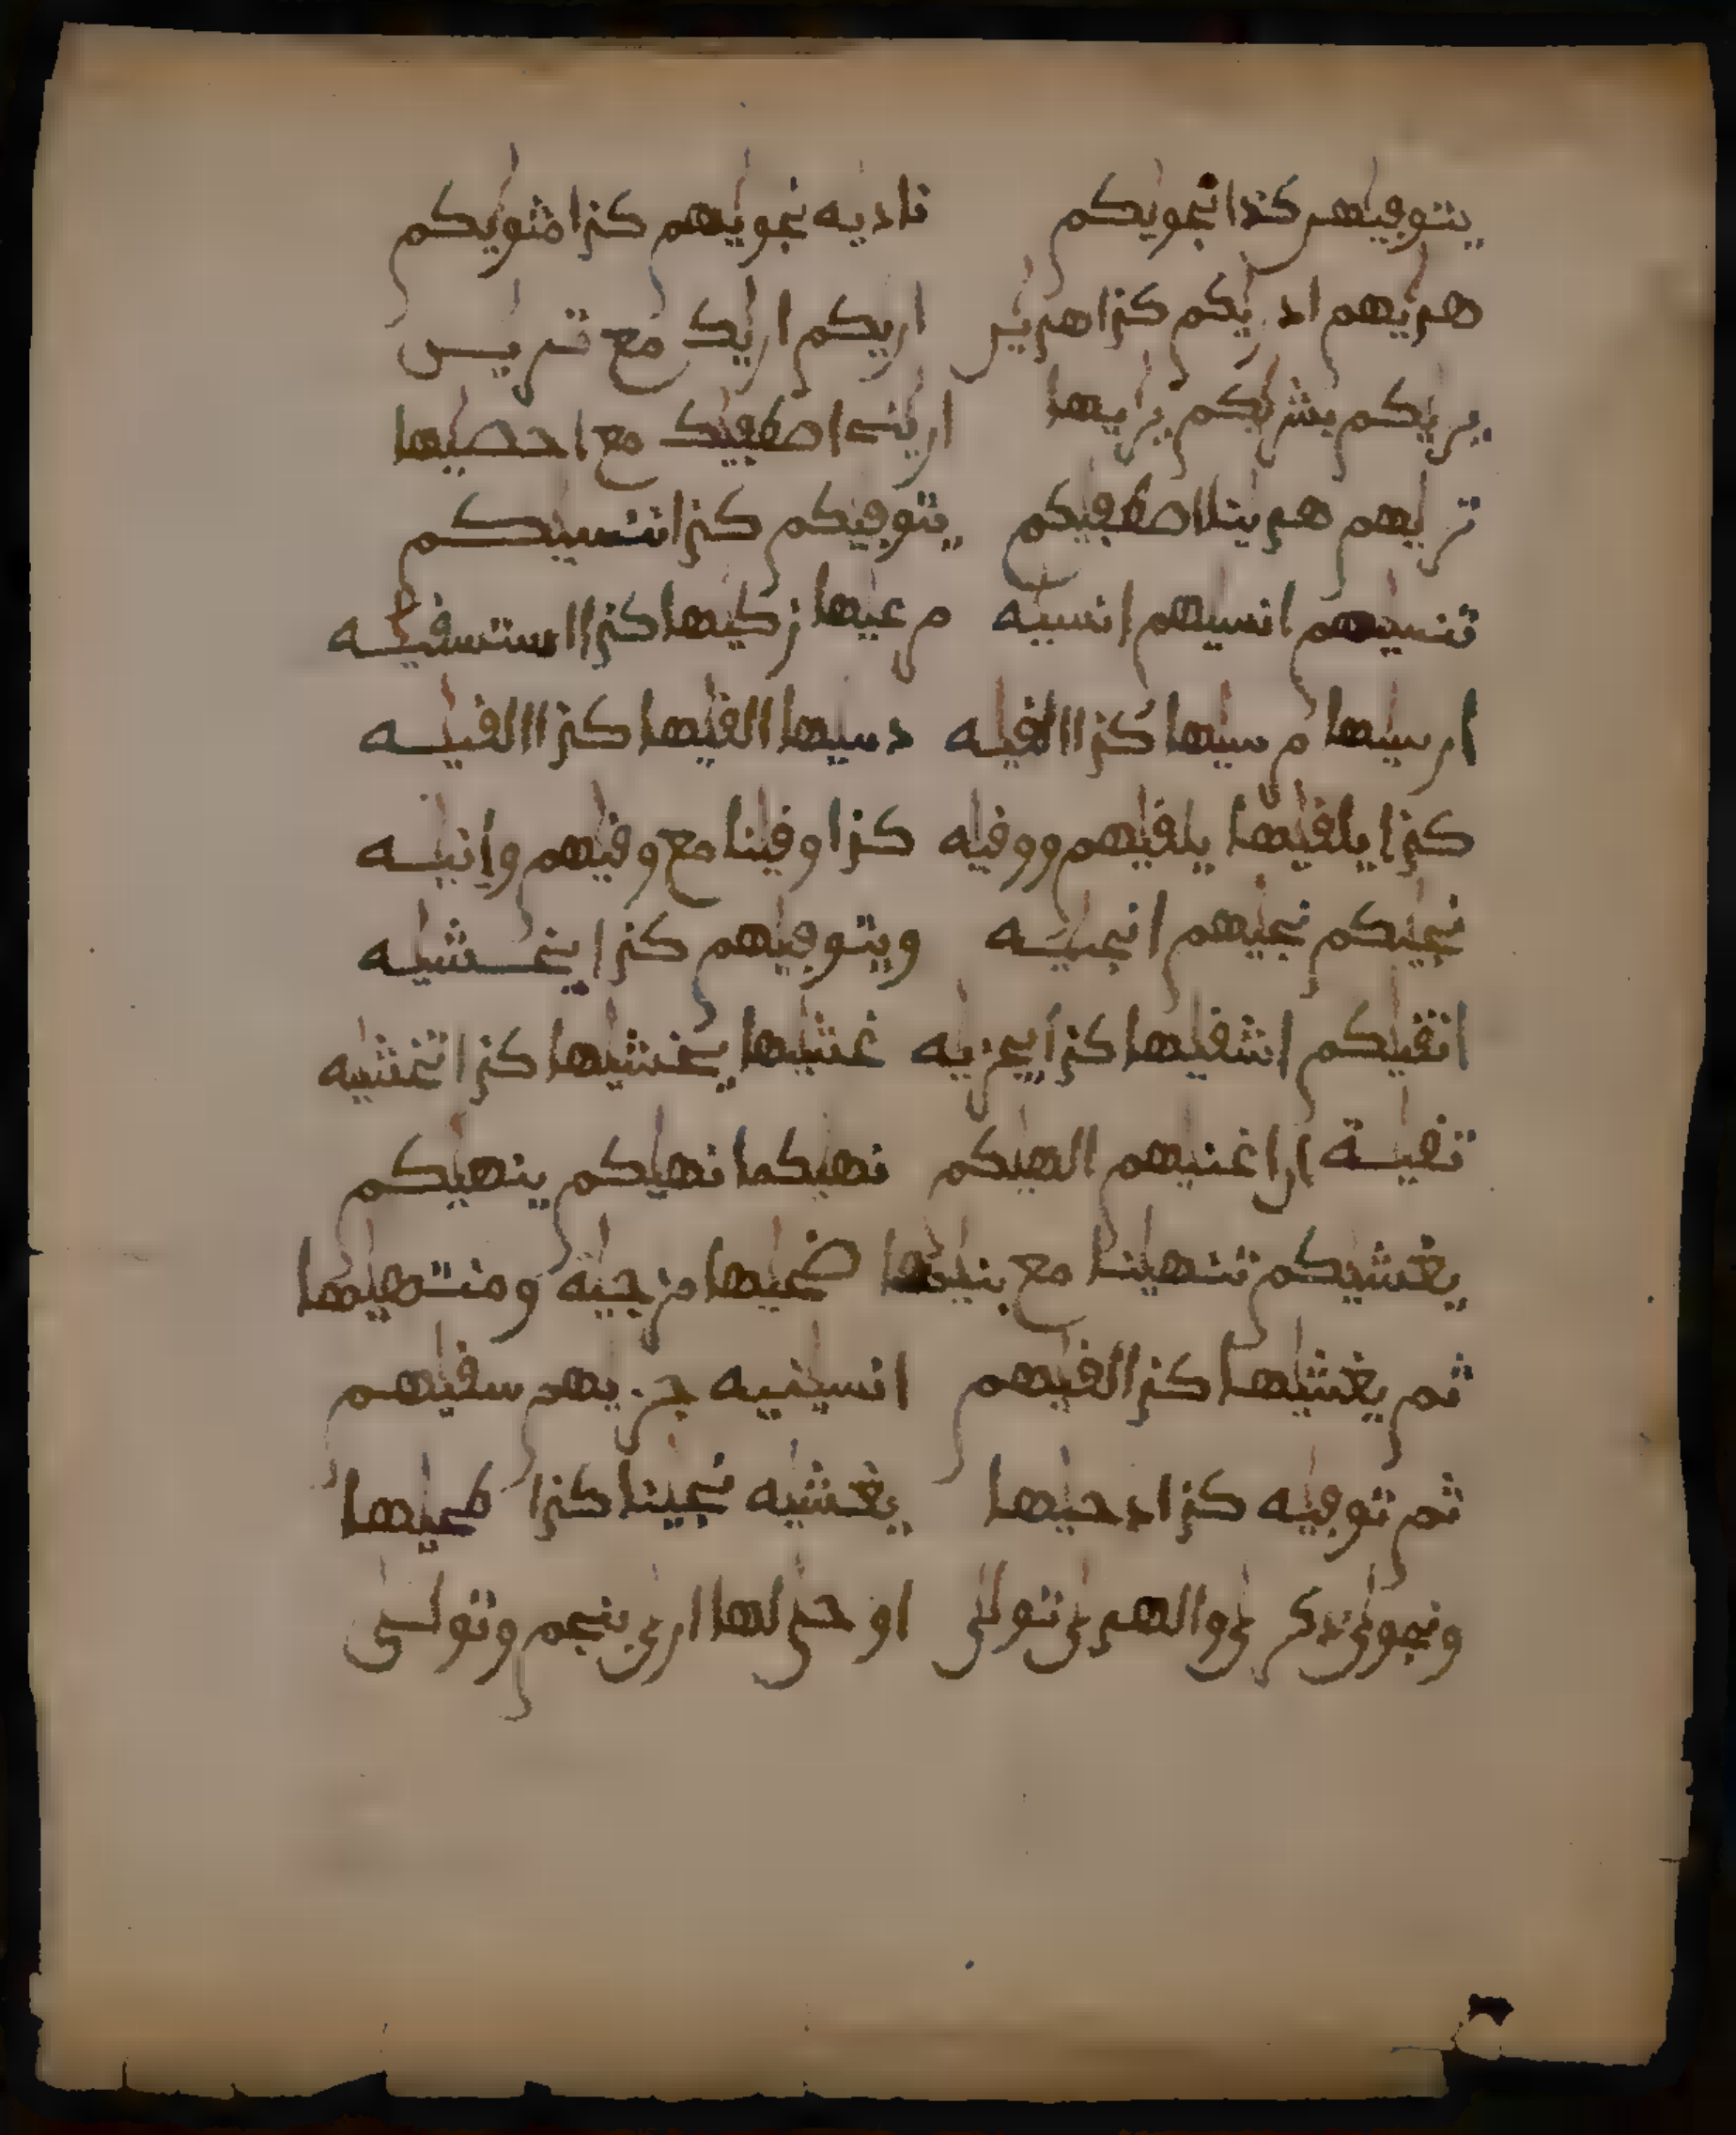 يتوفيهم كذا نجويكم ناديه نجويهم كذا مثويكم
هديهم اد ريكم كذا هدين اريكم اريك مع
يريكم بشريكم يريها اريك اصطفيك مع احصيها
تريهم هدينا اصطفيكم يتوفيكم كذا ننسيكم
تنسيهم انسيهم انسيه مرعيها زكيها كذا استسقيه
ارسيها مرسيها كذا القيه دسيها القيها كذا القيه
كذا يلقيها يلقيهم ووقيه كذا وقينا مع وقيهم وانيه
نجيكم نجيهم انجيه ويتوفيهم كذا يغشيه
اتقيكم اشقيها كذا يجزيه غشيها يغشيها كذا تغشيه
تقية اغنيهم الهيكم نهيكما نهيكم ينهيكم
يغشيكم تنهينا مع بنيها ضحيها مزجية ومنتهيها
ثم يغشيها كذا القيهم انسينيه سقيهم
ثم توفيه كذا دحيها يغشيه نجينا كذا طحيها
ونجوى ذكرى والهدى تولى اوحى لها ارى بنجم وتولى